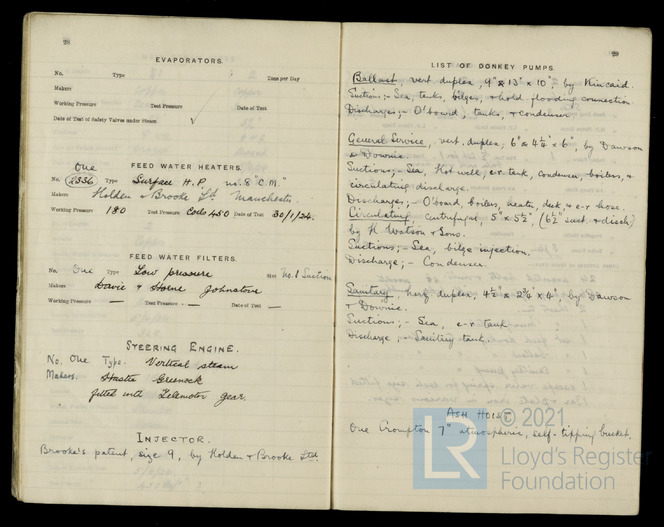 28
EVAPORATORS.
No. Type Tons per Day
Makers
Working Pressure Test Pressure Date of Test
Date of Test of Safety Valves under Steam
FEED WATER HEATERS.
One
No. 2336 Type Surface H.P. no. 8 "C.M."
Makers Holden & Brooke Ltd Manchester
Working Pressure 180 Test Pressure Coils 450 Date of Test 30/1/24.
FEED WATER FILTERS.
No. One Type Low pressure Size No. 1 Suction
Makers Davie & Horne Johnstone
Working Pressure — Test Pressure — Date of Test —
STEERING ENGINE.
No. One Type. Vertical steam
Makers. Hastie Greenock
fitted with Telemotor gear.
INJECTOR.
Brooke's patent, size 9, by Holden & Brooke Ltd.
29
LIST OF DONKEY PUMPS.
Ballast, vert duplex, 9" x 13" x 10", by Kincaid.
Suctions;- Sea, tanks, bilges, & hold flooding connection.
Discharges;- O'board, tanks, & condenser.
General Service, vert. duplex, 6" x 4¼" x 6", by Dawson
& Downie.
Suctions;- Sea, Hot well, e.r. tank, condenser, boilers, &
circulating discharge.
Discharges;- O'board, boilers, heater, deck, & e-r hose.
Circulating, centrifugal, 5" x 5½", (6½" suct. & disch)
by H Watson & Sons.
Suctions;- Sea, bilge injection.
Discharge;- Condenser.
Sanitary, horz duplex, 4½" x 2¾" x 4", by Dawson
& Downie.
Suctions;- Sea, e-r tank
Discharge;- Sanitary tank.
ASH HOIST.
One Crompton 7" atmospheric, self-tipping bucket.
© 2021
LR
Lloyd's Register
Foundation